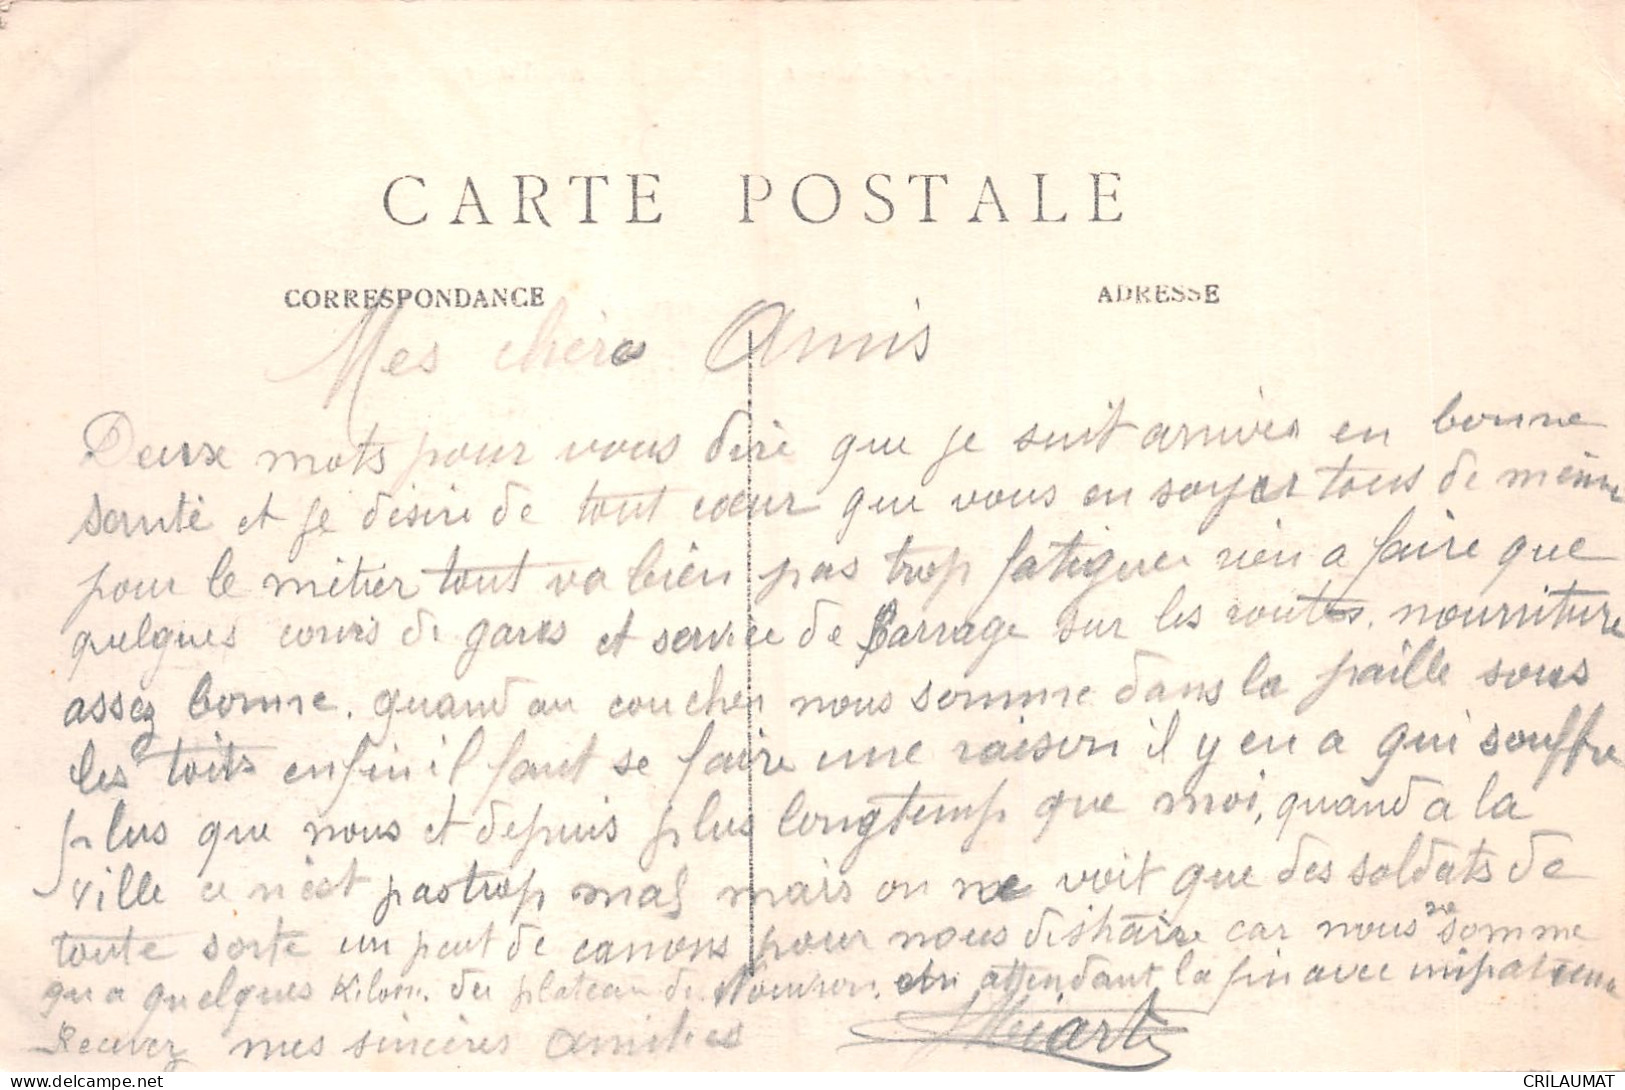 CARTE POSTALE
CORRESPONDANCE
ADRESSE
Mes chères Amis
Deux mots pour vous dire que je suit arrivée en bonne
santé et je désire de tout cœur que vous en soyer tous de même
pour le métier tout va bien pas trop fatiguer rien a faire que
quelques cours de gares et service de Barrage sur les routes. nourriture
assez bonne. quand au coucher nous somme dans la paille sous
les toits enfin il faut se faire une raison il y en a qui souffre
plus que nous et depuis plus longtemp que moi, quand a la
ville ce n'est pas trop mal mais on ne voit que des soldats de
toute sorte un peut de canons pour nous distraire car nous ne somme
qu a quelques Kilom. du plateau de Nouvron. en attendant la fin avec impatience
Recevez mes sincères amitiés
Huart
CRILAUMAT